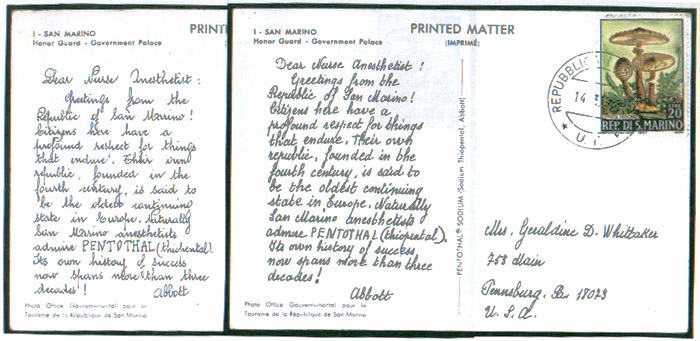 I - SAN MARINO
Honor Guard - Government Palace
PRINT
Dear Nurse Anesthetist :
Greetings from the
Republic of San Marino !
Citizens here have a
profound respect for things
that endure. Their own
republic, founded in the
fourth century, is said to
be the oldest continuing
state in Europe. Naturally
San Marino anesthetists
admire PENTOTHAL (thiopental).
Its own history of success
now spans more than three
decades !
Abbott
Photo Office Gouvernemental pour le
Tourisme de la République de San Marino
I - SAN MARINO
Honor Guard - Government Palace
PRINTED MATTER
(IMPRIMÉ)
Dear Nurse Anesthetist !
Greetings from the
Republic of San Marino!
Citizens here have a
profound respect for things
that endure. Their own
republic, founded in the
fourth century, is said to
be the oldest continuing
state in Europe. Naturally
San Marino anesthetists
admire PENTOTHAL (thiopental).
Its own history of success
now spans more than three
decades!
Abbott
Photo Office Gouvernemental pour le
Tourisme de la République de San Marino
PENTOTHAL® SODIUM (Sodium Thiopental, Abbott)
REPUBBLIC
14
20
REP. DI S. MARINO
Mrs. Geraldine D. Whittaker
758 Main
Pennsburg, Pa 18073
U.S.A.